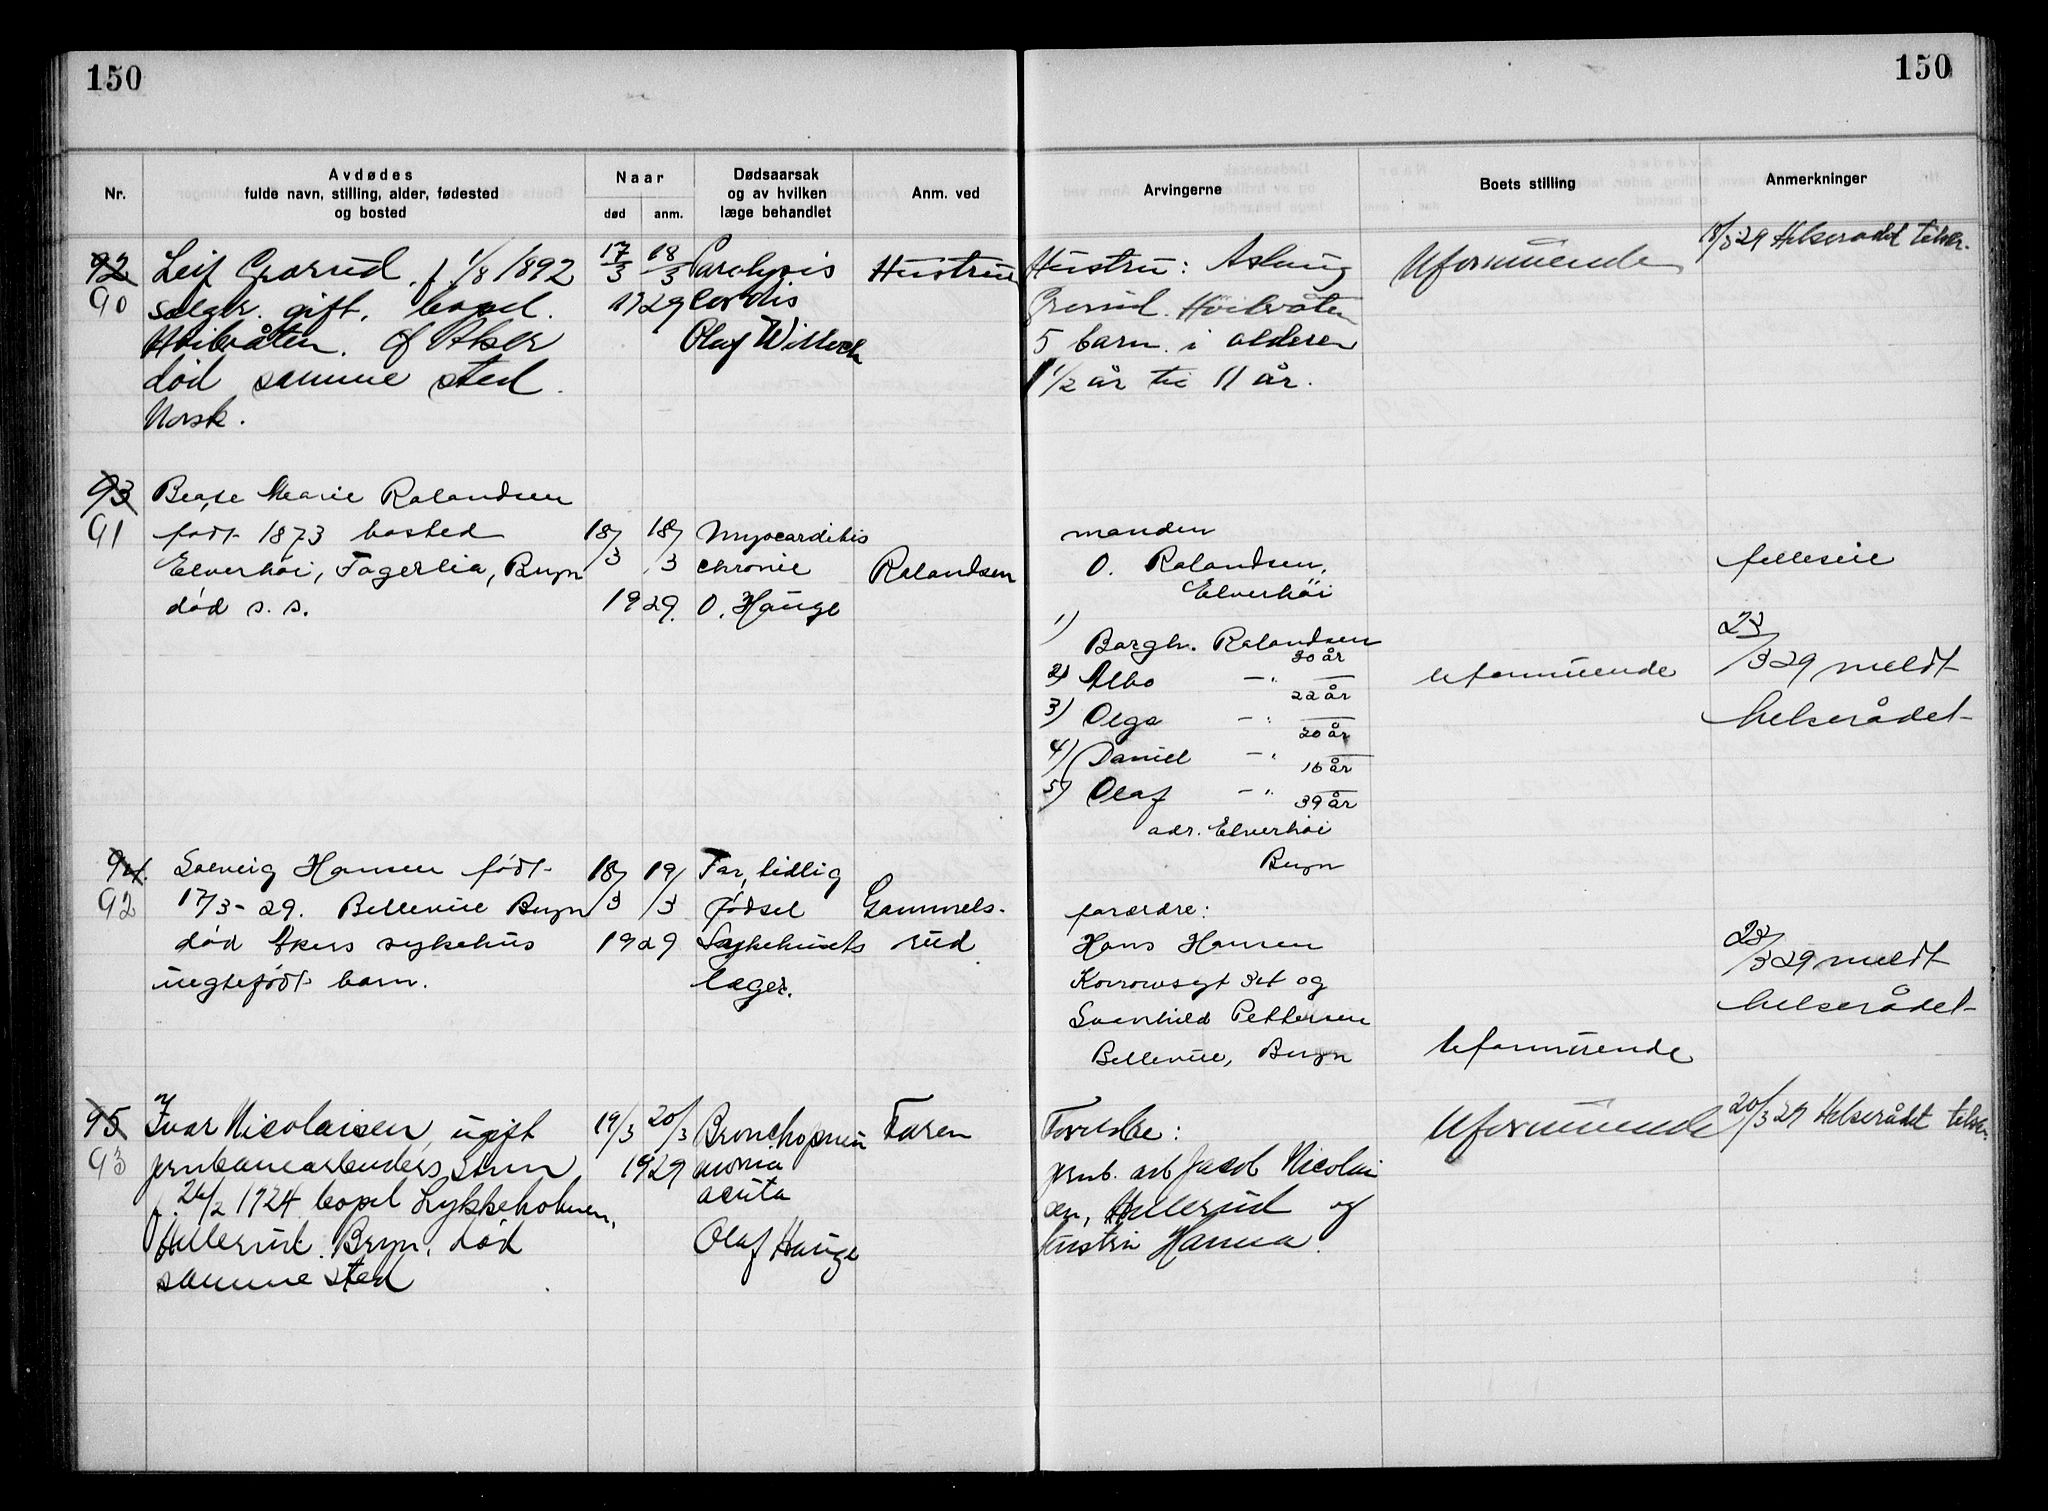 150
150
Nr.
Avdødes
fulde navn, stilling, alder, fødested
og bosted
Naar
død
anm.
Dødsaarsak
og av hvilken
læge behandlet
Anm. ved
Arvingerne
Boets stilling
Anmerkninger
92
90
Leif Grorud, f 1/8 1892
gift, bopel.
Hvilvåten. Aker
død samme sted.
Norsk.
17/3 18/3
1929
Paralysis
Cordis
Olaf
Hustruen
Hustru: Aslaug
Grorud. Hvilvåten
5 barn i alderen
1 1/2 år til 11 år.
Uformuende
18/3 29 Helserådet tilskr.
93
91
Beate Marie Rolandsen
født 1873 bosted
Elverhöi, Fagerlia, Bryn
død s. s.
18/3 18/3
1929.
Myocarditis
chronic
O. Hauge
Rolandsen
manden
O. Rolandsen,
Elverhöi
1) Borgh. Rolandsen
30 år
2) —"—
22 år
3) Olga —"—
20 år
4) Daniel —"—
16 år
5) Olaf —"—
39 år
adr. Elverhöi
Bryn
Uformuende
felleseie
23/3 29 meldt
helserådet
94.
92
Solveig Hansen født
17/3-29. Bellevue Bryn
død Akers sykehus
uegtefødt barn.
18/3 19/3
1929
For tidlig
fødsel
Sykehusets
læger.
Gammels-
rud
forældre:
Hans Hansen
og
Svanhild Pettersen
Bellevue, Bryn
Uformuende
23/3 29 meldt
helserådet
95
93
Ivar Nicolaisen, ugift
jernbanearbeiders sønn
f. 26/2 1924 bopel Lykkeholmen,
Hellerud. Bryn. død
samme sted
19/3 20/3
1929
Bronchopneu
monia
acuta
Olaf Hauge
Faren
Foreldre:
jernb. arb Jacob Nicolai
sen, Hellerud og
hustru Hanna.
Uformuende
20/3 29 Helserådet tilskr.